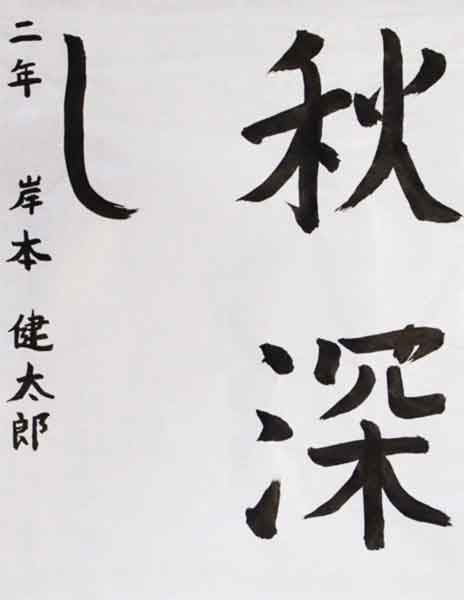 秋深
し
二年 岸本 健太郎